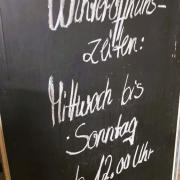 Winteröffnungs-
zeiten:
Mittwoch bis
Sonntag
12.00 Uhr